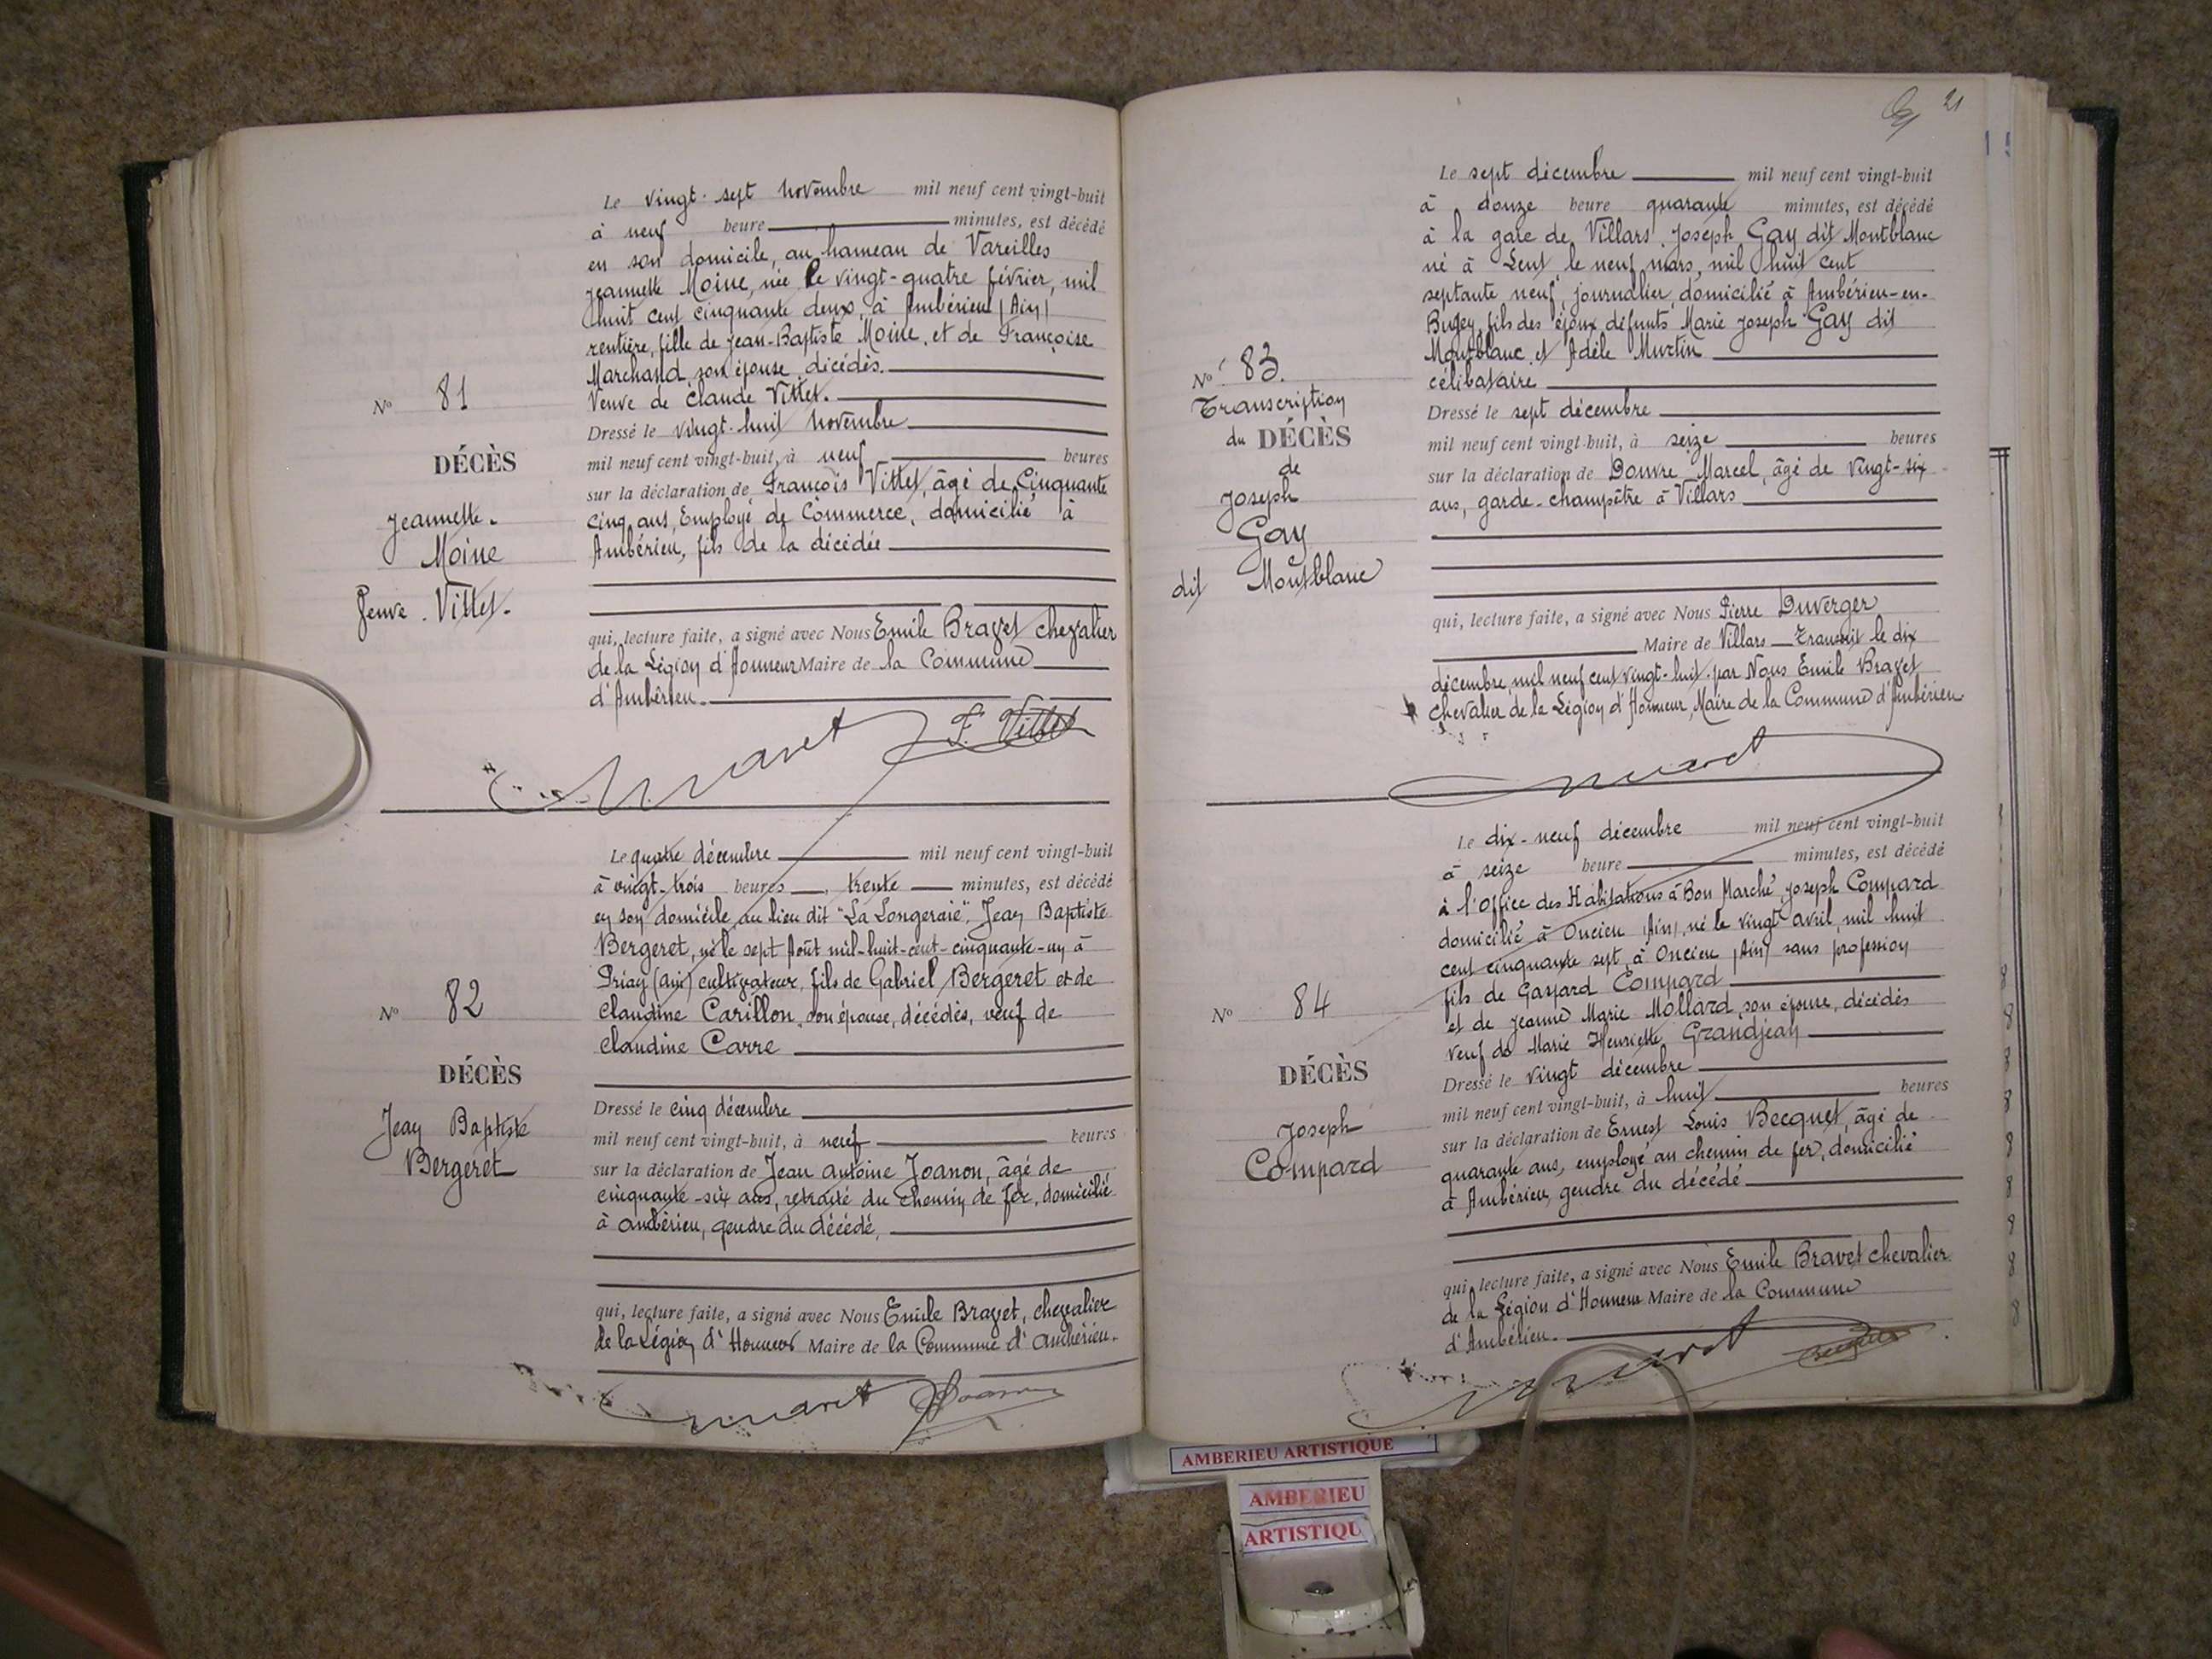 Le vingt-sept novembre mil neuf cent vingt-huit
à neuf heure minutes, est décédé
en son domicile, au hameau de Vareilles
Jeannette Moine, née le vingt-quatre février, mil
huit cent cinquante deux, à Ambérieu (Ain)
rentière, fille de Jean-Baptiste Moine, et de Françoise
Marchand, son épouse, décédés.
Veuve de Claude Vittet.
Dressé le vingt-huit novembre
mil neuf cent vingt-huit, à neuf heures
sur la déclaration de François Vittet, âgé de Cinquante
cinq ans, Employé de Commerce, domicilié à
Ambérieu, fils de la décédée
qui, lecture faite, a signé avec Nous Emile Bravet chevalier
de la Légion d'Honneur Maire de la Commune
d'Ambérieu.
F. Vittet
No 81
DÉCÈS
Jeannette
Moine
Veuve Vittet.
Le quatre décembre mil neuf cent vingt-huit
à vingt-trois heures, trente minutes, est décédé
en son domicile au lieu dit "La Longeraie". Jean Baptiste
Bergeret, né le sept Août mil-huit-cent-cinquante-un à
Priay (ain) cultivateur, fils de Gabriel Bergeret et de
Claudine Carillon, son épouse, décédés, veuf de
Claudine Carre
Dressé le cinq décembre
mil neuf cent vingt-huit, à neuf heures
sur la déclaration de Jean antoine Joanon, âgé de
cinquante-six ans, retraité du chemin de fer, domicilié
à ambérieu, gendre du décédé,
qui, lecture faite, a signé avec Nous Emile Bravet, chevalier
de la Légion d'Honneur Maire de la Commune d'ambérieu.
No 82
DÉCÈS
Jean Baptiste
Bergeret
21
Le sept décembre mil neuf cent vingt-huit
à douze heure quarante minutes, est décédé
à la gare de Villars, Joseph Gay dit Montblanc
né à Lent le neuf mars, mil huit cent
septante neuf, journalier, domicilié à Ambérieu-en-
Bugey, fils des époux défunts Marie Joseph Gay dit
Montblanc et Adèle Murtin
célibataire
Dressé le sept décembre
mil neuf cent vingt-huit, à seize heures
sur la déclaration de Douvre Marcel, âgé de vingt-six
ans, garde-champêtre à Villars
qui, lecture faite, a signé avec Nous Pierre Duverger
Maire de Villars Transcrit le dix
décembre, mil neuf cent vingt-huit par Nous Emile Bravet
chevalier de la Légion d'Honneur, Maire de la Commune d'Ambérieu
No 83.
Transcription
du DÉCÈS
de
Joseph
Gay
dit Montblanc
Le dix-neuf décembre mil neuf cent vingt-huit
à seize heure minutes, est décédé
à l'Office des Habitations à Bon Marché, Joseph Compard
domicilié à Oncieu (Ain), né le vingt avril, mil huit
cent cinquante sept, à Oncieu (Ain) sans profession
fils de Gaspard Compard
et de Jeanne Marie Mollard, son épouse, décédés
veuf de Marie Henriette Grandjean
Dressé le vingt décembre
mil neuf cent vingt-huit, à huit heures
sur la déclaration de Ernest Louis Becquet, âgé de
quarante ans, employé au chemin de fer, domicilié
à Ambérieu, gendre du décédé
qui, lecture faite, a signé avec Nous Emile Bravet chevalier
de la Légion d'Honneur Maire de la Commune
d'Ambérieu.
No 84
DÉCÈS
Joseph
Compard
AMBERIEU ARTISTIQUE
AMBERIEU
ARTISTIQU